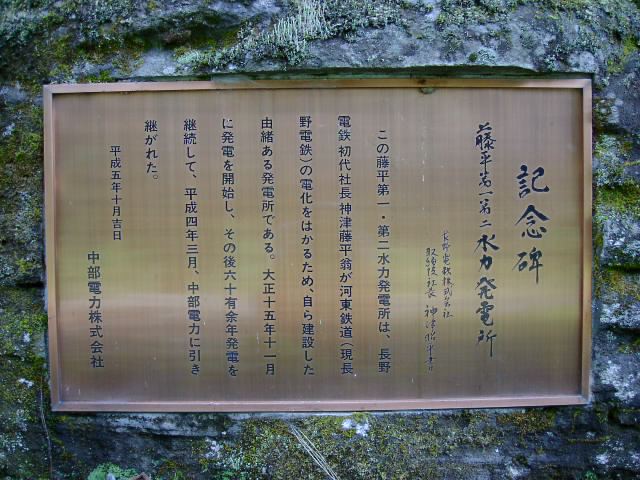 記念碑
藤平第一第二水力発電所
長野電鉄株式会社
取締役社長 神津昭平書
この藤平第一・第二水力発電所は、長野
電鉄初代社長神津藤平翁が河東鉄道(現長
野電鉄)の電化をはかるため、自ら建設した
由緒ある発電所である。大正十五年十一月
に発電を開始し、その後六十有余年発電を
継続して、平成四年三月、中部電力に引き
継がれた。
平成五年十月吉日
中部電力株式会社